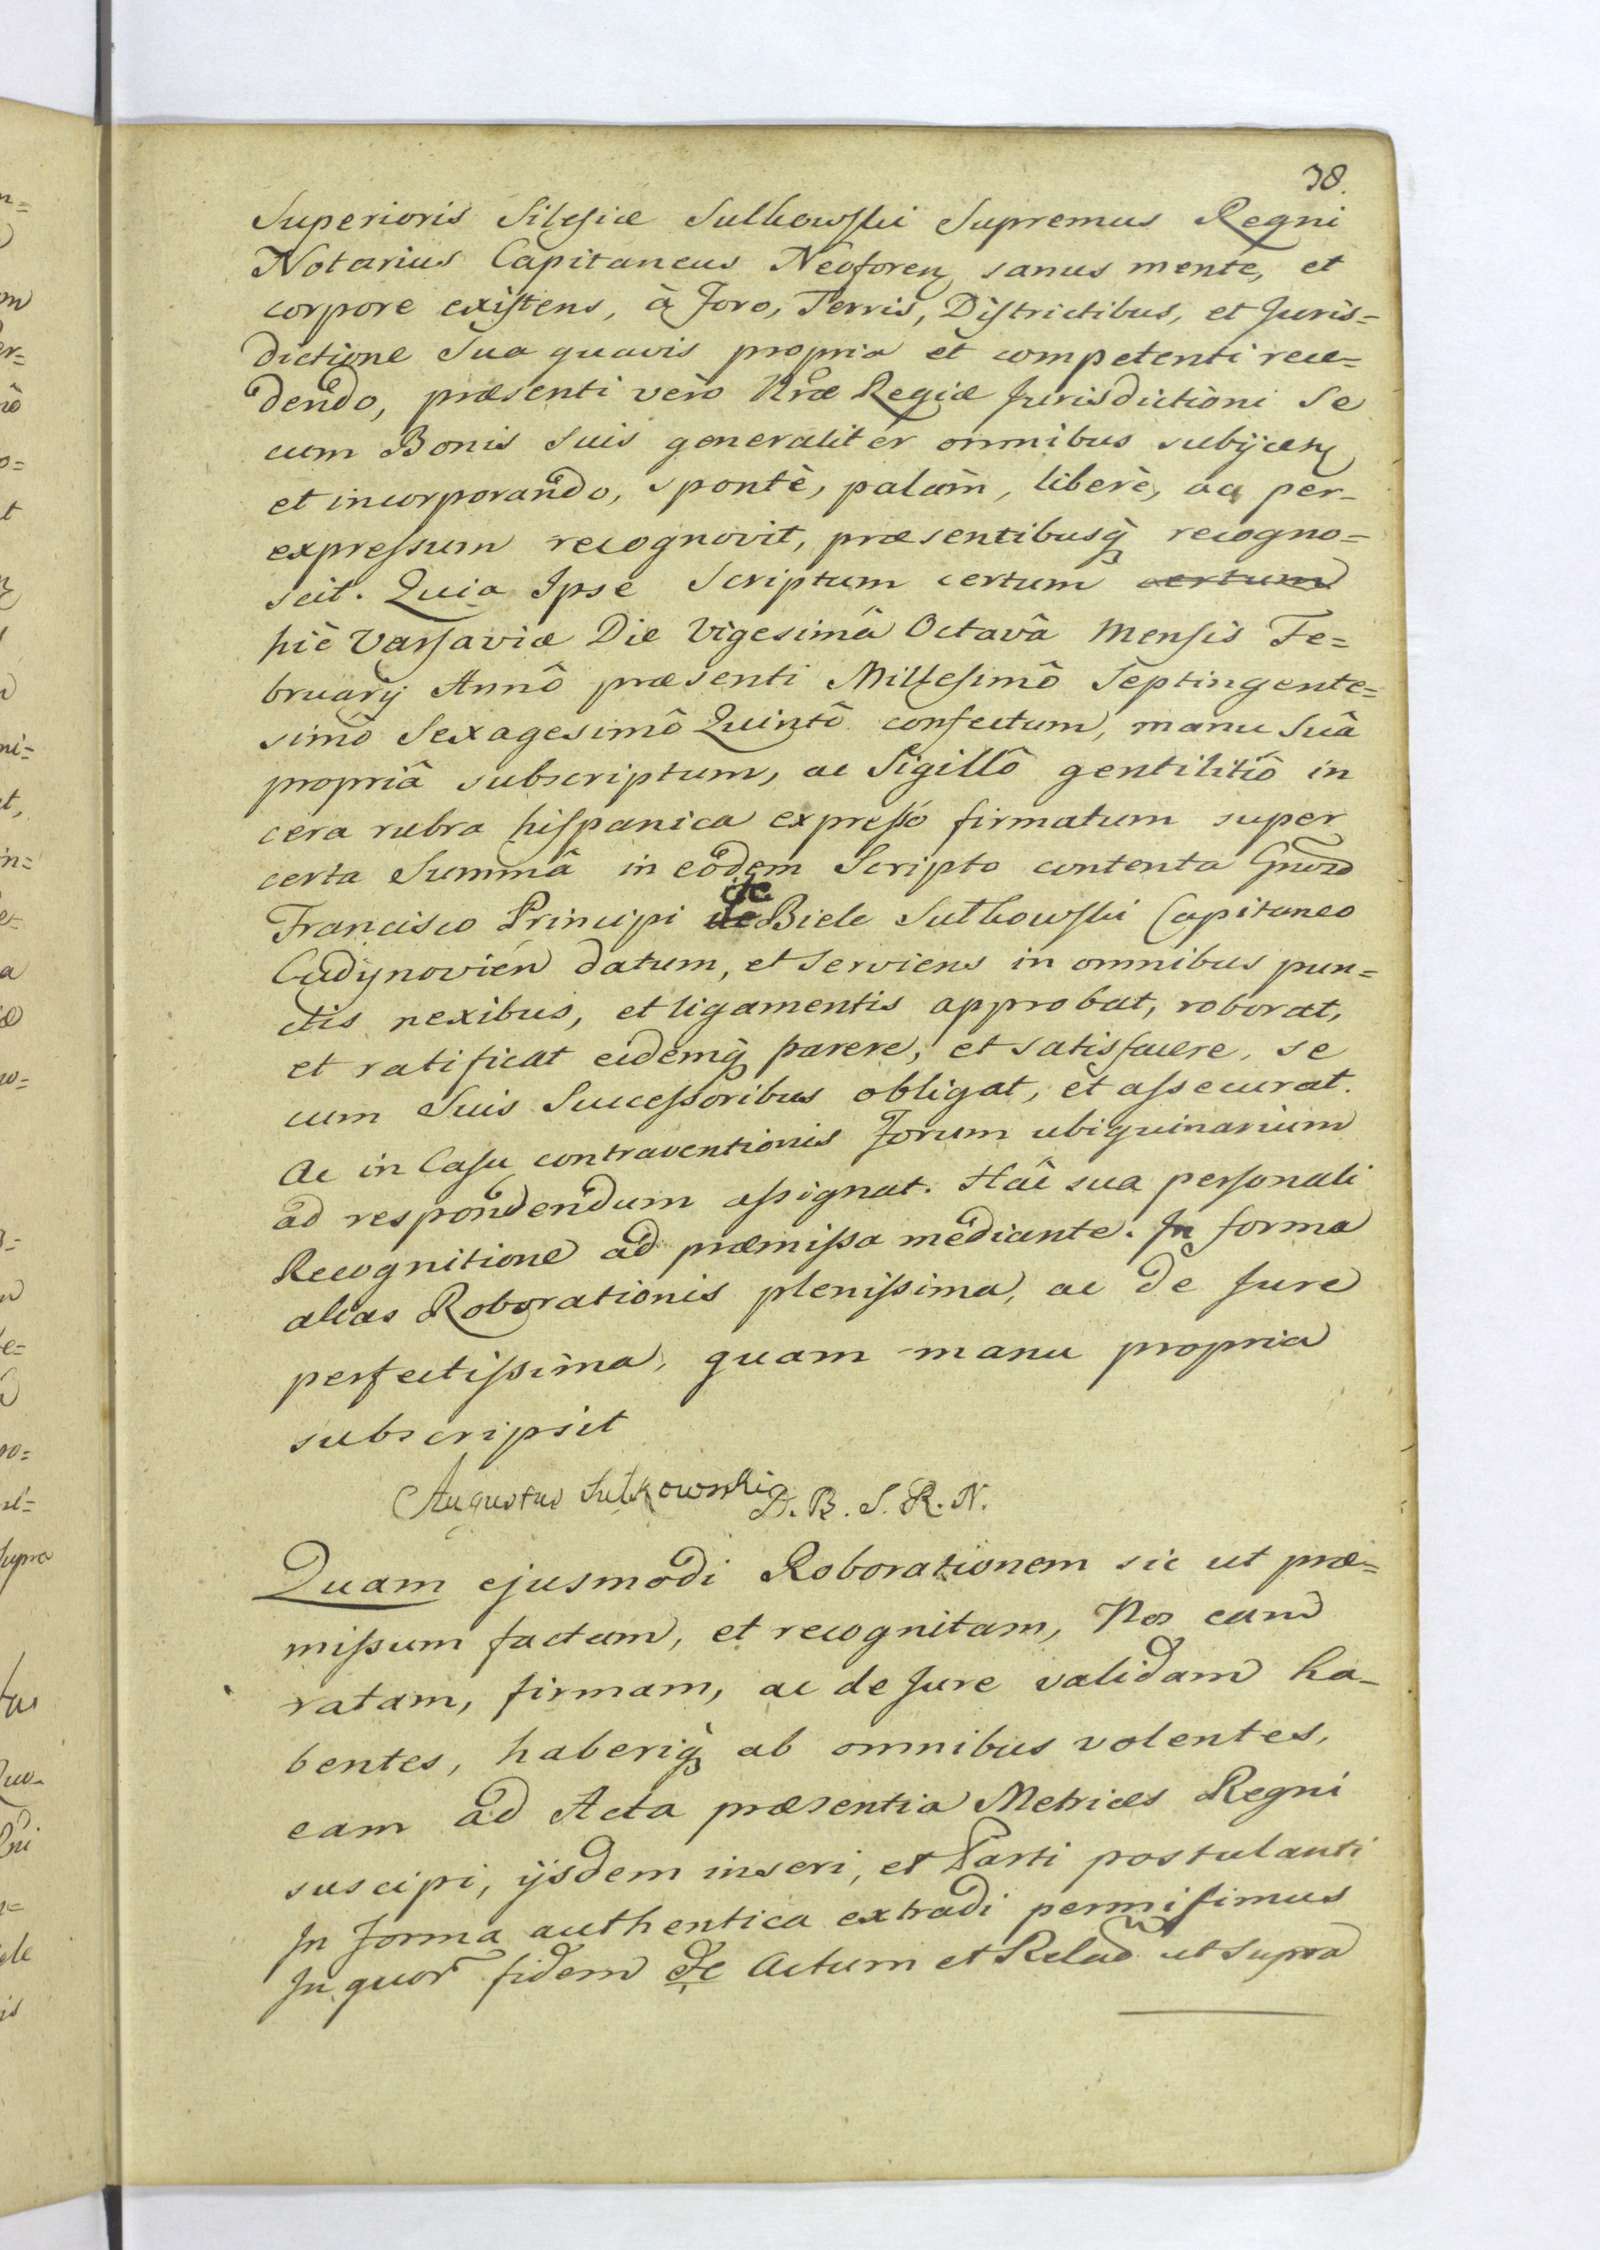 38.
Superioris Silesiæ Sulkowski Supremus Regni
Notarius Capitaneus Neoforen sanus mente, et
corpore existens, à Foro, Terris, Districtibus, et Juris=
dictione Sua quavis propria et competenti rece=
dendo, præsenti verò Nræ Regiæ Jurisdictioni Se
cum Bonis Suis generaliter omnibus subijcen
et incorporando, spontè, palàm, liberè, ac per-
expressum recognovit, præsentibusq̀ recogno=
scit. Quia Ipse Scriptum certum certum
hic Varsaviæ Die Vigesimâ Octavâ Mensis Fe=
bruarij Annô præsenti Millesimô Septingente=
simô Sexagesimô Quintô confectum, manu Suâ
propriâ subscriptum, ac Sigillô gentilitiô in
cera rubra hispanica expresso firmatum super
certa Summâ in eodem Scripto contenta Gnoso
Francisco Principi de de Biele Sulkowski Capitaneo
datum, et Serviens in omnibus pun=
ctis nexibus, et ligamentis approbat, roborat,
et ratificat eidemq̀ parere, et satisfacere, se
cum Suis Successoribus obligat, et assecurat.
Ac in Casu contraventionis Forum ubiquinarium
ad respondendum assignat. Hâc sua personali
Recognitione ad præmissa mediante. In forma
alias Roborationis plenissima, ac de Jure
perfectissima, quam manu propria
subscripsit
Augustus Sulkowski D. B. S. R. N.
Quam ejusmodi Roborationem sic ut præ=
missum factam, et recognitam, Nos eam
ratam, firmam, ac de Jure validam ha-
bentes, haberiq̀ ab omnibus volentes,
eam ad Acta præsentia Metrices Regni
suscipi, ijsdem inseri, et Parti postulanti
In Forma authentica extradi permisimus
In quor fidem &c Actum et Relad ut Supra